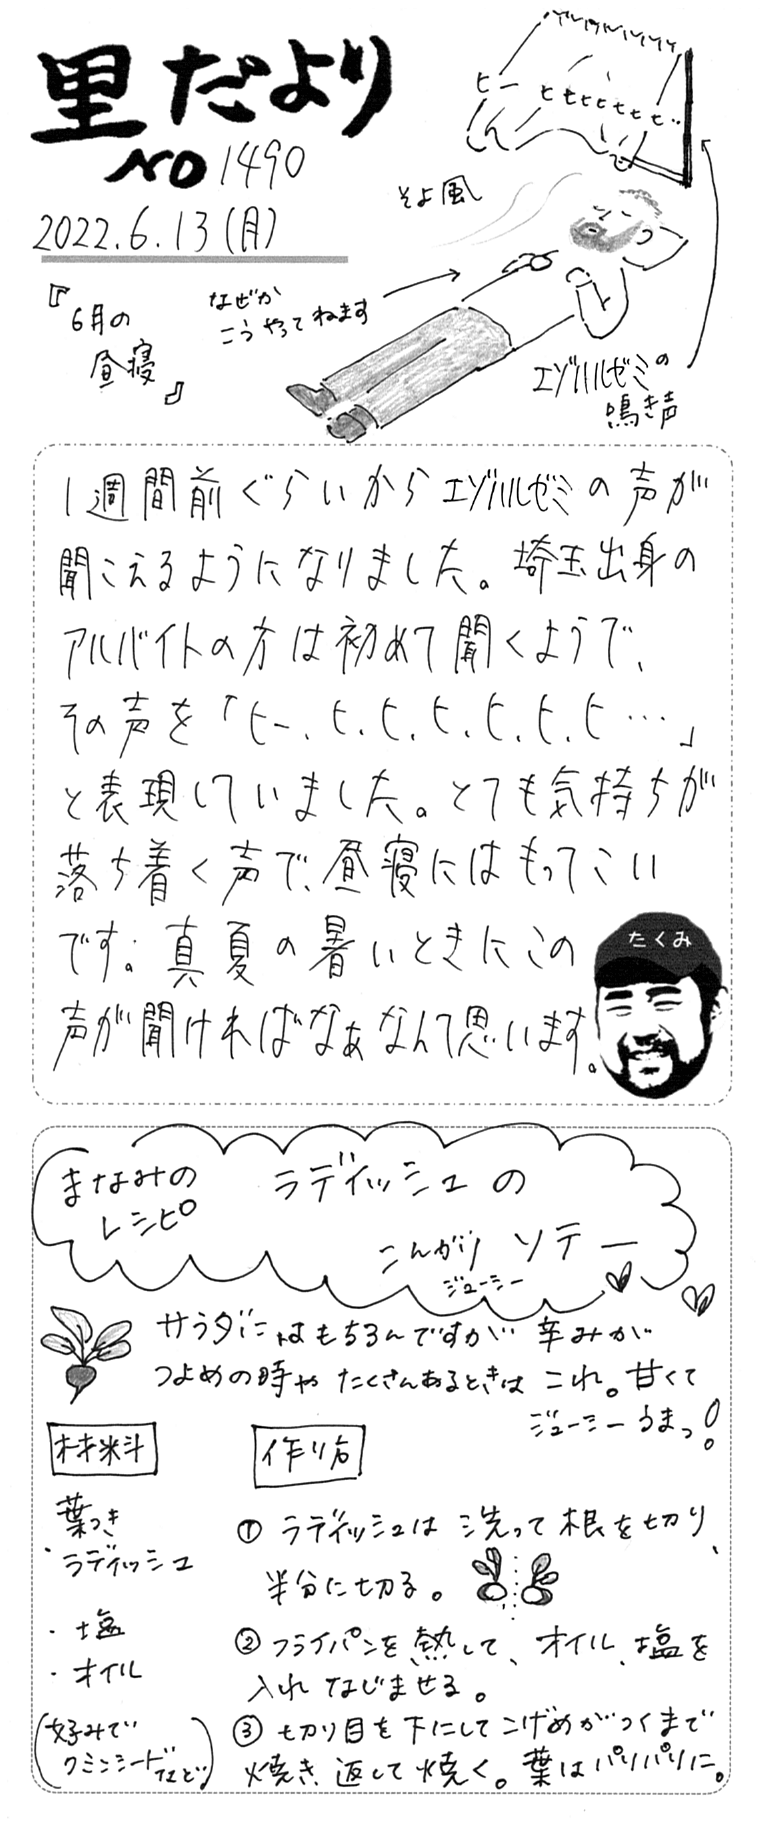 里だより
NO 1490
2022.6.13(月)
『6月の
昼寝』
ヒー ヒヒヒヒヒヒヒ…
そよ風
なぜか
こうやってねます
エゾハルゼミの
鳴き声
1週間前ぐらいからエゾハルゼミの声が
聞こえるようになりました。埼玉出身の
アルバイトの方は初めて聞くようで、
その声を「ヒー、ヒ、ヒ、ヒ、ヒ、ヒ、ヒ…」
と表現していました。とても気持ちが
落ち着く声で、昼寝にはもってこい
です。真夏の暑いときにこの
声が聞ければなぁなんて思います。
たくみ
まなみの
レシピ
ラディッシュの
こんがりソテー
ジューシー
サラダにはもちろんですが辛みが
つよめの時やたくさんあるときはこれ。甘くて
ジューシーうまっ!
材料
葉つき
・ラディッシュ
・塩
・オイル
(好みで
クミンシードなど)
作り方
① ラディッシュは洗って根を切り、
半分に切る。
② フライパンを熱して、オイル、塩を
入れなじませる。
③ 切り目を下にしてこげめがつくまで
焼き、返して焼く。葉はパリパリに。